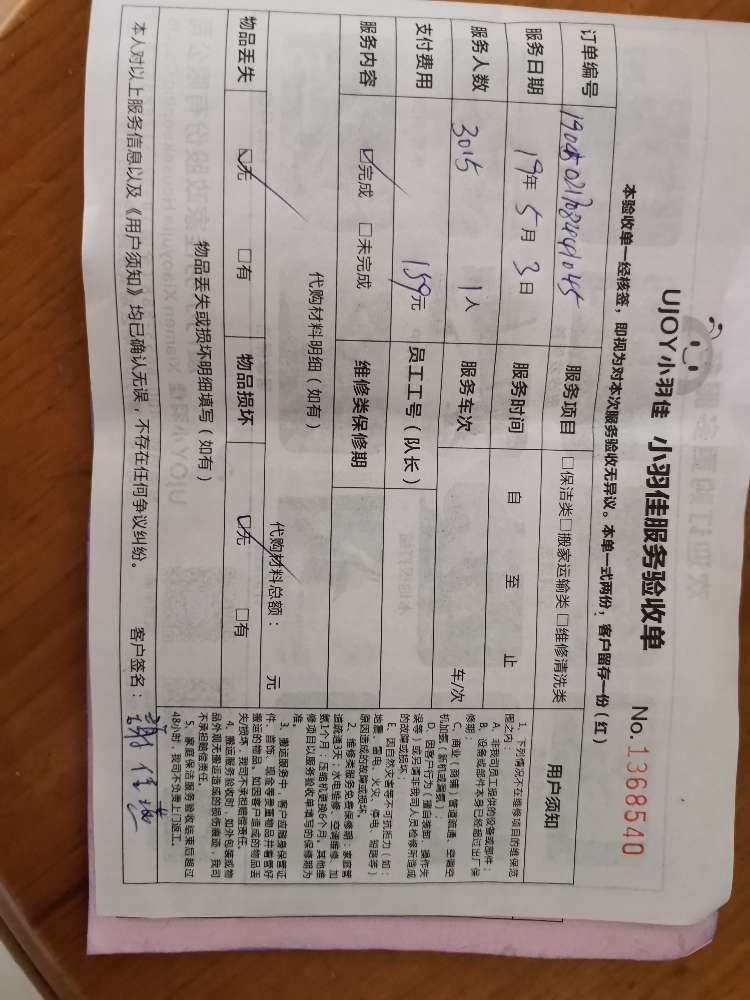 UJOY小羽佳 小羽佳服务验收单
No. 1368540
本验收单一经核签，即视为对本次服务验收无异议。本单一式两份，客户留存一份（红）
订单编号
服务项目 □保洁类□搬家运输类 □维修清洗类
服务日期 19年 5月 3日 服务时间 自 至 止
服务人数 3015 1人 服务车次 车/次
支付费用 159元 员工工号（队长）
服务内容 ☑完成 □未完成 维修类保修期
代购材料明细（如有）
代购材料总额： 元
物品丢失 ☑无 □有 物品损坏 ☑无 □有
物品丢失或损坏明细填写（如有）
本人对以上服务信息以及《用户须知》均已确认无误，不存在任何争议纠纷。 客户签名：
用户须知
1、下列情况不在维修项目的维保范
围之内：
A、非我司员工提供的设备或部件；
B、设备或部件本身已经超过出厂保
修期；
C、商业（商铺）管道疏通、空调空
机加氨（新机或漏氨）；
D、因客户行为（擅自拆卸、操作失
误等）或另请非我司人员检修所造成
的故障或损坏；
E、因自然灾害等不可抗拒力（如：
地震、雷电、火灾、停电、短路等）
原因造成的故障或损坏。
2、维修类服务免费保修期：家庭管
道疏通3天；水电维修、空调维修、加
氨1个月；压缩机更换6个月。其他维
修项目以服务验收单填写的保修期为
准。
3、搬运服务中，客户应随身保管证
件、首饰、现金等贵重物品并看管好
搬运的物品。如因客户造成的物品丢
失/损坏，我司不承担赔偿责任。
4、搬运服务验收时，如外包装或物
品外观无搬运造成的损伤痕迹，我司
不承担赔偿责任。
5、家庭保洁服务验收结束后超过
48小时，我司不负责上门返工。